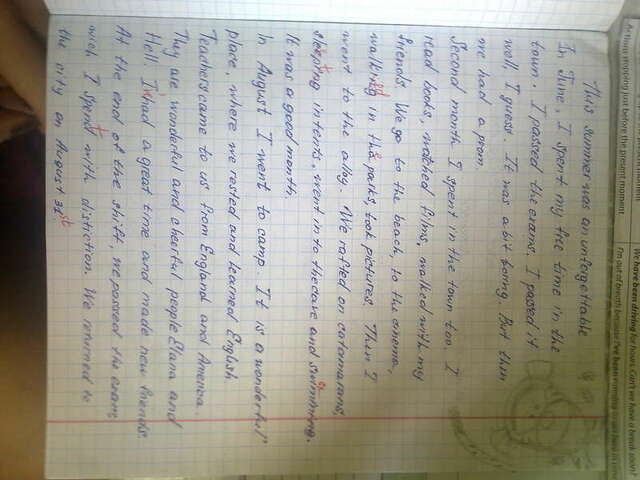 This summer was an unforgettable
In June, I spent my the time in the
town. I passed the exams. I passed it
well, I guess. It was a bit boring. But then
we had a prom.
Second month I spent in the town too. I
read books, watched films, walked with my
friends. We go to the beach, to the cinema,
walking in the parks, took pictures. Then I
went to the altay. We rafted on catamarans,
sleeping in tents, went in to the cave and swimming.
It was a good month.
In August I went to camp. It is a wonderful
place, where we rested and learned English
Teachers came to us from England and America.
They are wonderful and cheerful people Elana and
Hell. I had a great time and made new friends.
At the end of the shift, we passed the exam
wich I spent with distiction. We returned to
the city on August 31st
before the present moment
We have been driving for hours. Can't we have a break soon?
I'm out of breath because I've been running